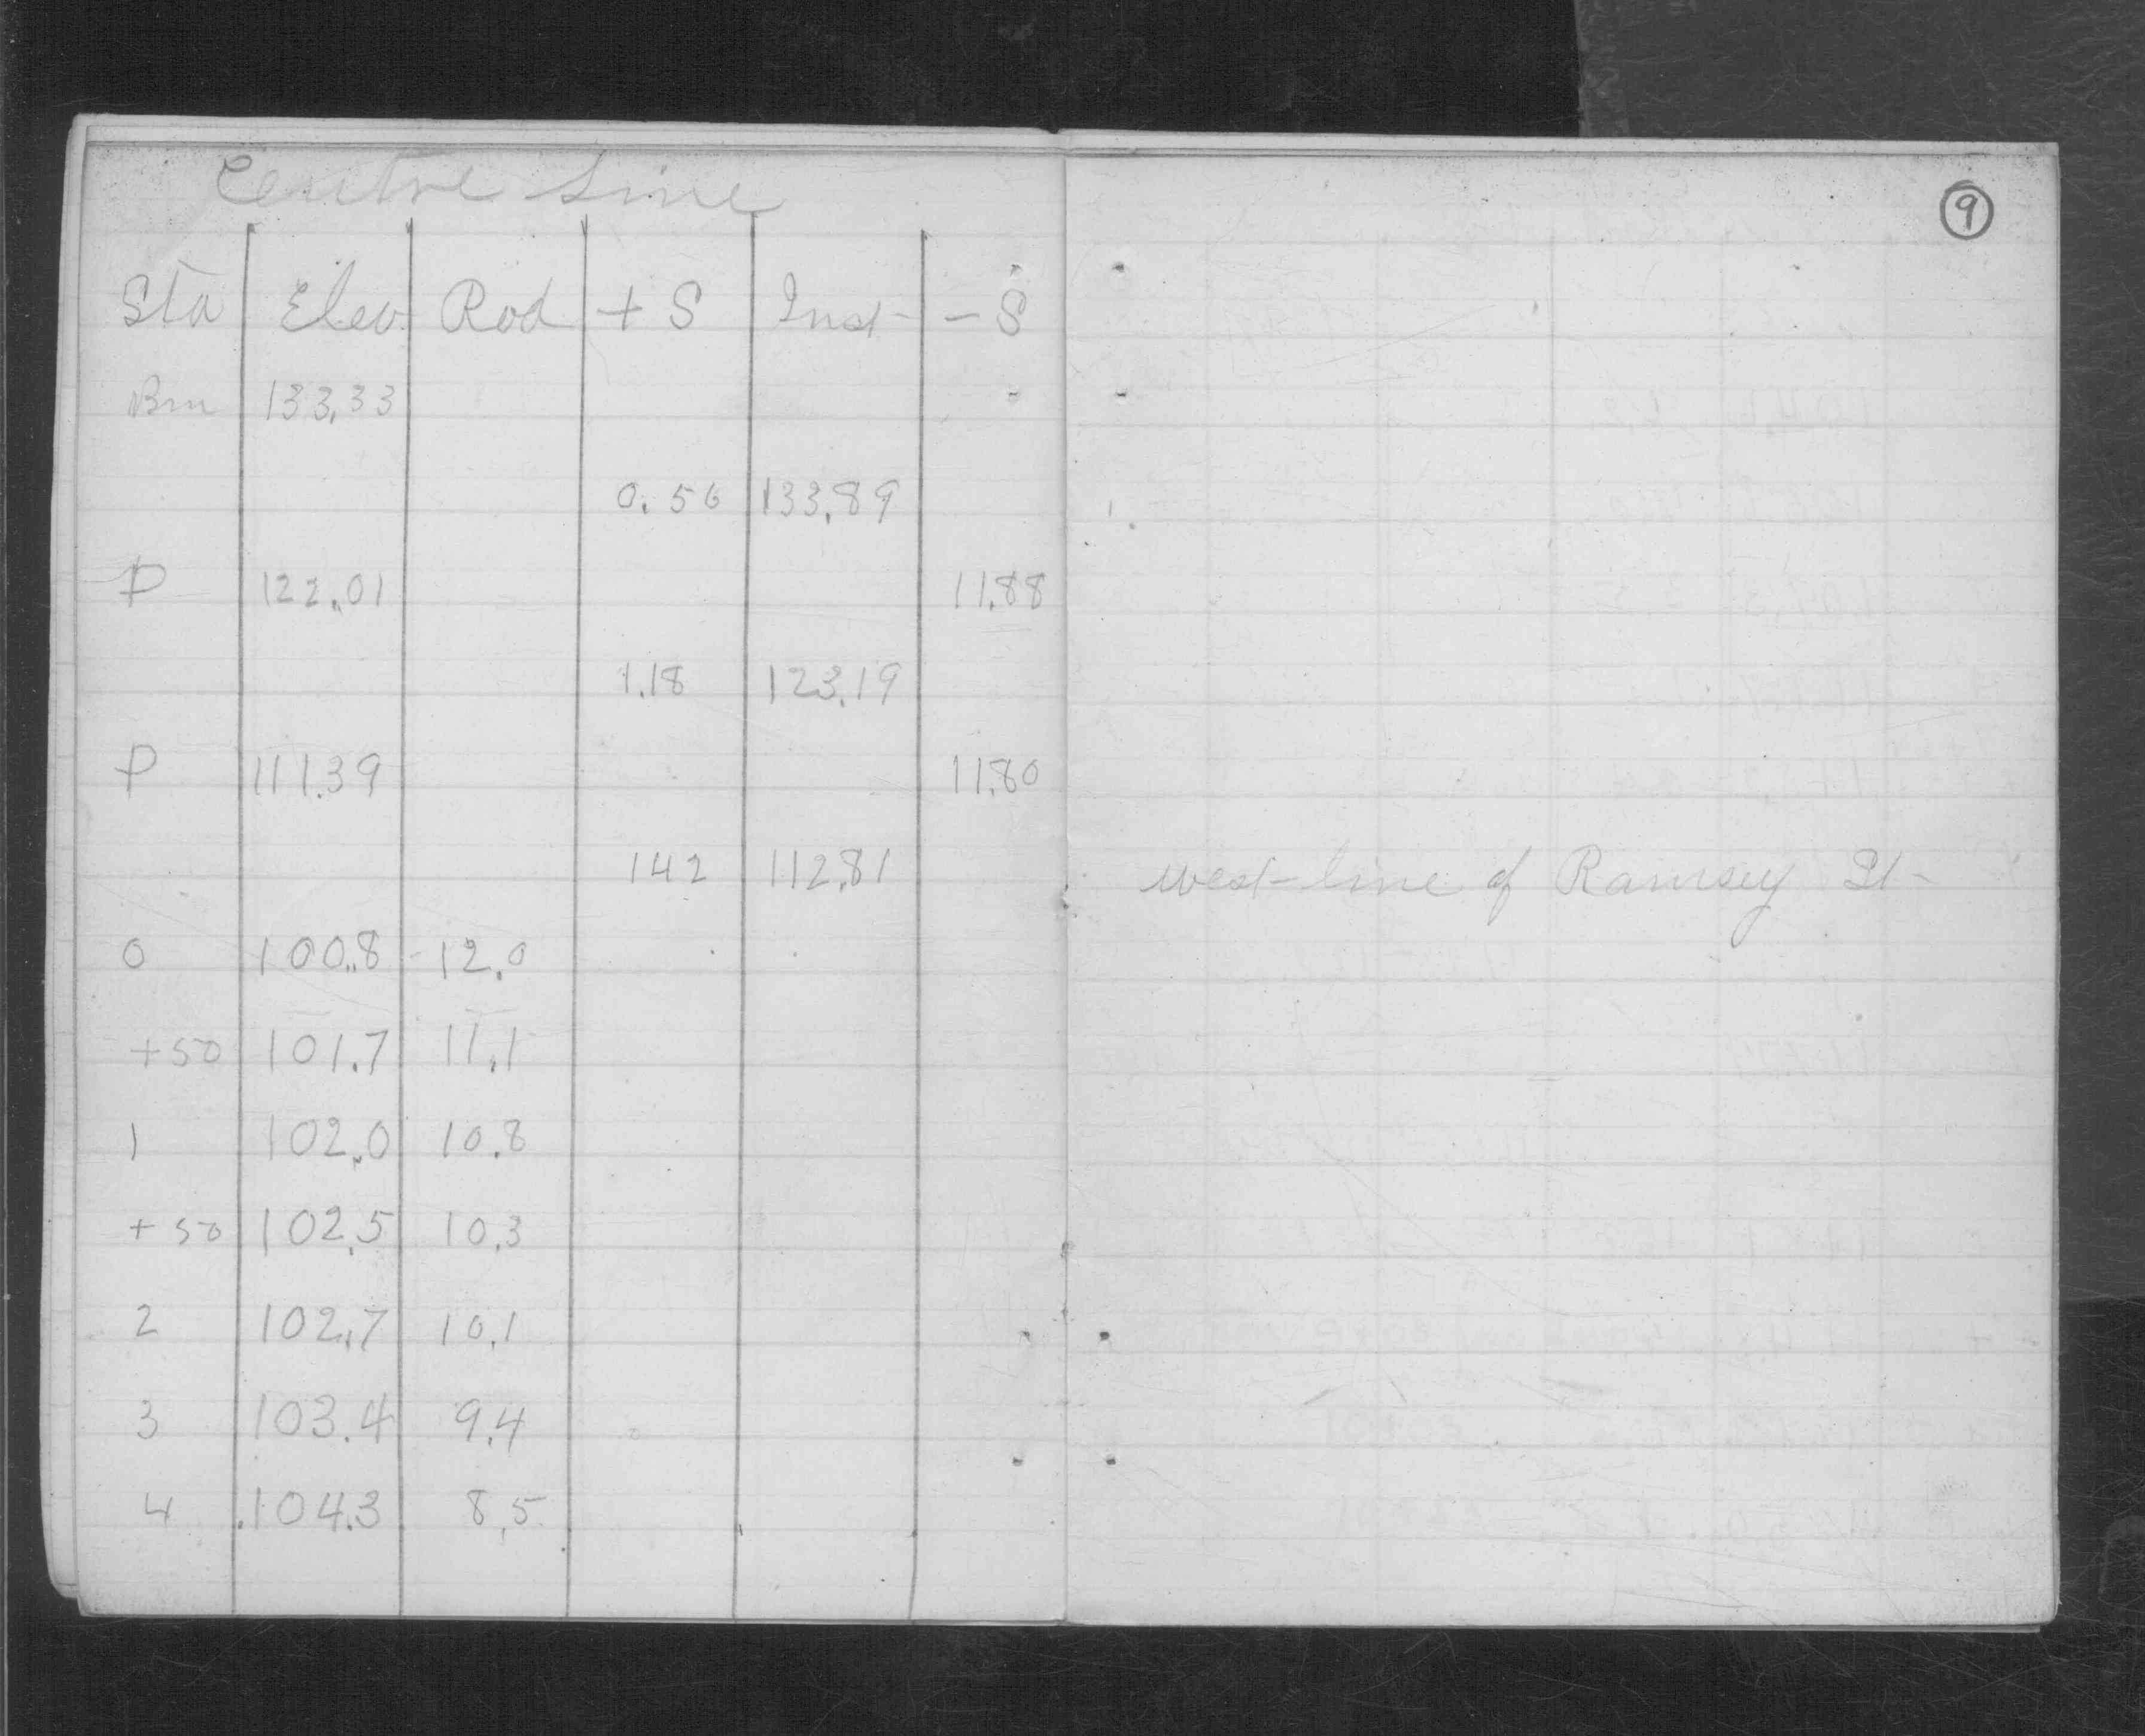 Centre Line
Sta Elev Rod + S Inst - S
Bm 133.33
0.56 133.89
P 122.01 11.88
1.18 123.19
P 111.39 11.80
142 112.81
0 100.8 12.0
+50 101.7 11.1
1 102.0 10.8
+50 102.5 10.3
2 102.7 10.1
3 103.4 9.4
4 104.3 8.5
9
west line of Ramsey St